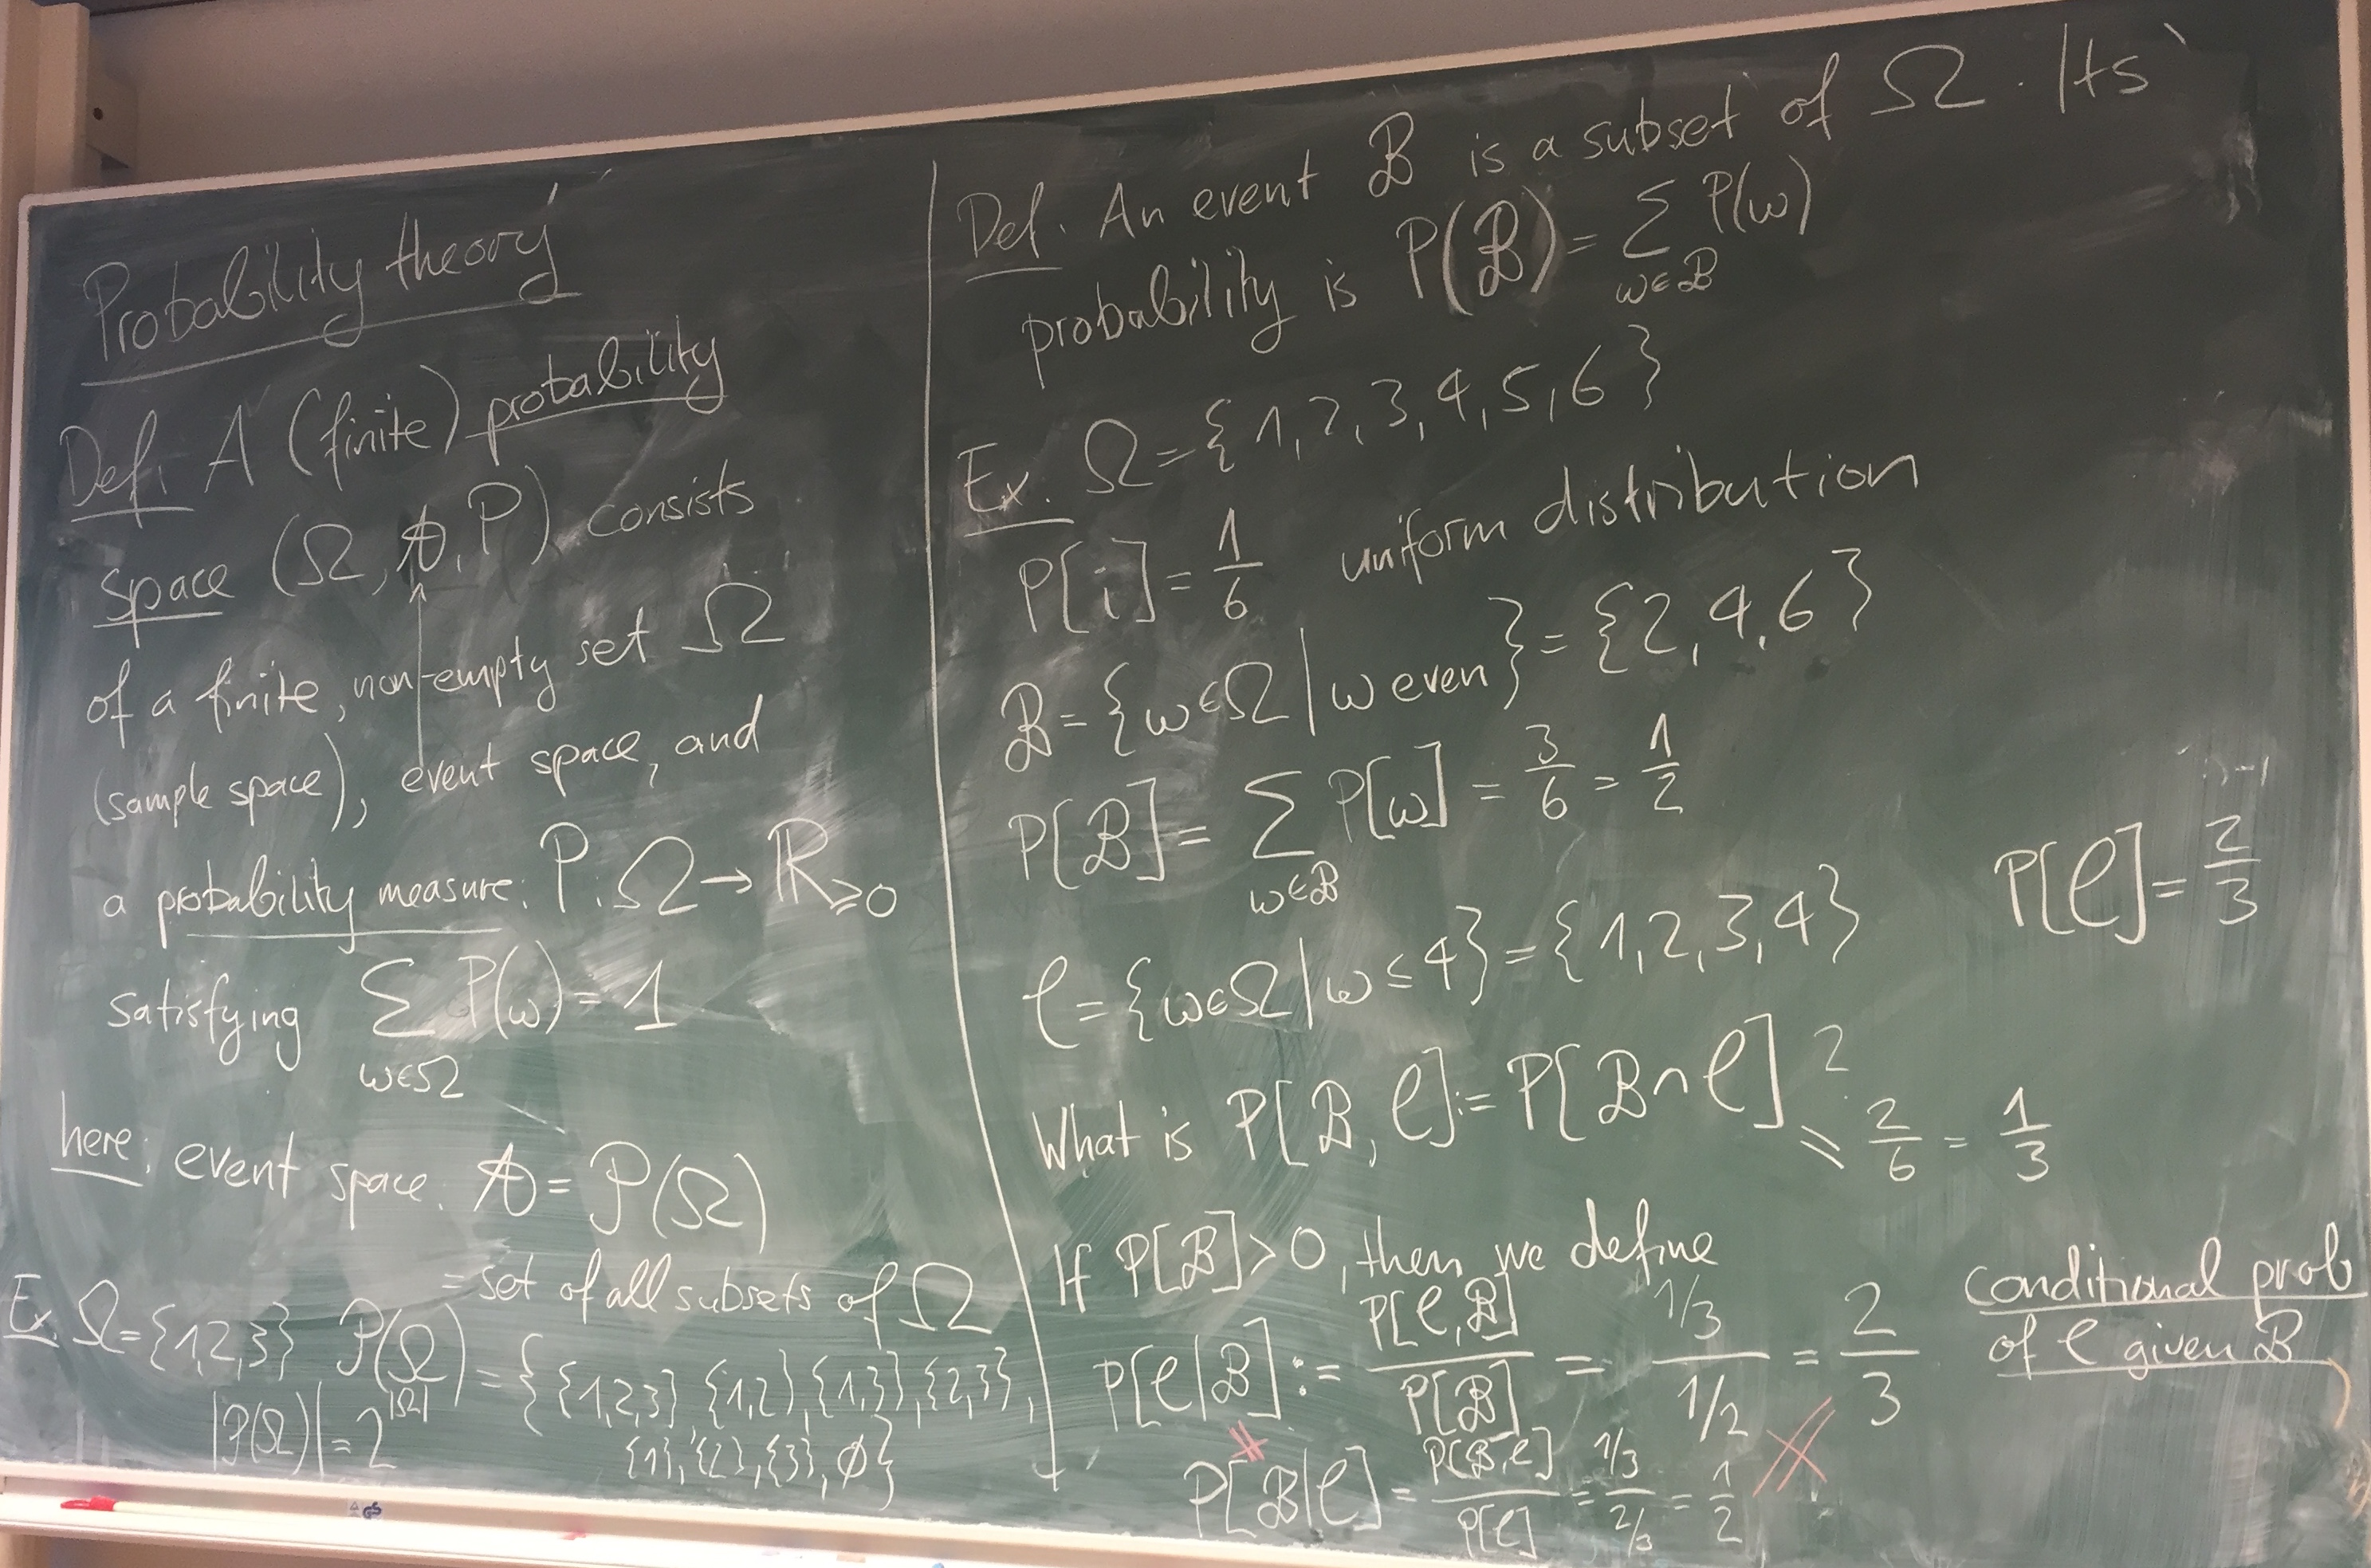 Probability theory
Def. A (finite) probability
space (Ω, 𝒜, P) consists
of a finite, non-empty set Ω
(sample space), event space, and
a probability measure: P: Ω → ℝ≥0
satisfying ∑ P(ω) = 1
ω∈Ω
here: event space: 𝒜 = 𝒫(Ω)
= set of all subsets of Ω
Ex. Ω = {1,2,3} 𝒫(Ω) = { {1,2,3}, {1,2}, {1,3}, {2,3},
|𝒫(Ω)| = 2^|Ω| {1}, {2}, {3}, ∅ }
Def. An event ℬ is a subset of Ω. Its
probability is P(ℬ) = ∑ P(ω)
ω∈ℬ
Ex. Ω = {1,2,3,4,5,6}
P[i] = 1/6 uniform distribution
ℬ = {ω∈Ω | ω even} = {2,4,6}
P[ℬ] = ∑ P[ω] = 3/6 = 1/2
ω∈ℬ
𝒞 = {ω∈Ω | ω ≤ 4} = {1,2,3,4} P[𝒞] = 2/3
What is P[ℬ, 𝒞] := P[ℬ∩𝒞] ?
= 2/6 = 1/3
If P[ℬ] > 0, then we define
P[𝒞|ℬ] := P[𝒞,ℬ]/P[ℬ] = (1/3)/(1/2) = 2/3 conditional prob
of 𝒞 given ℬ
P[ℬ|𝒞] = P[ℬ,𝒞]/P[𝒞] = (1/3)/(2/3) = 1/2